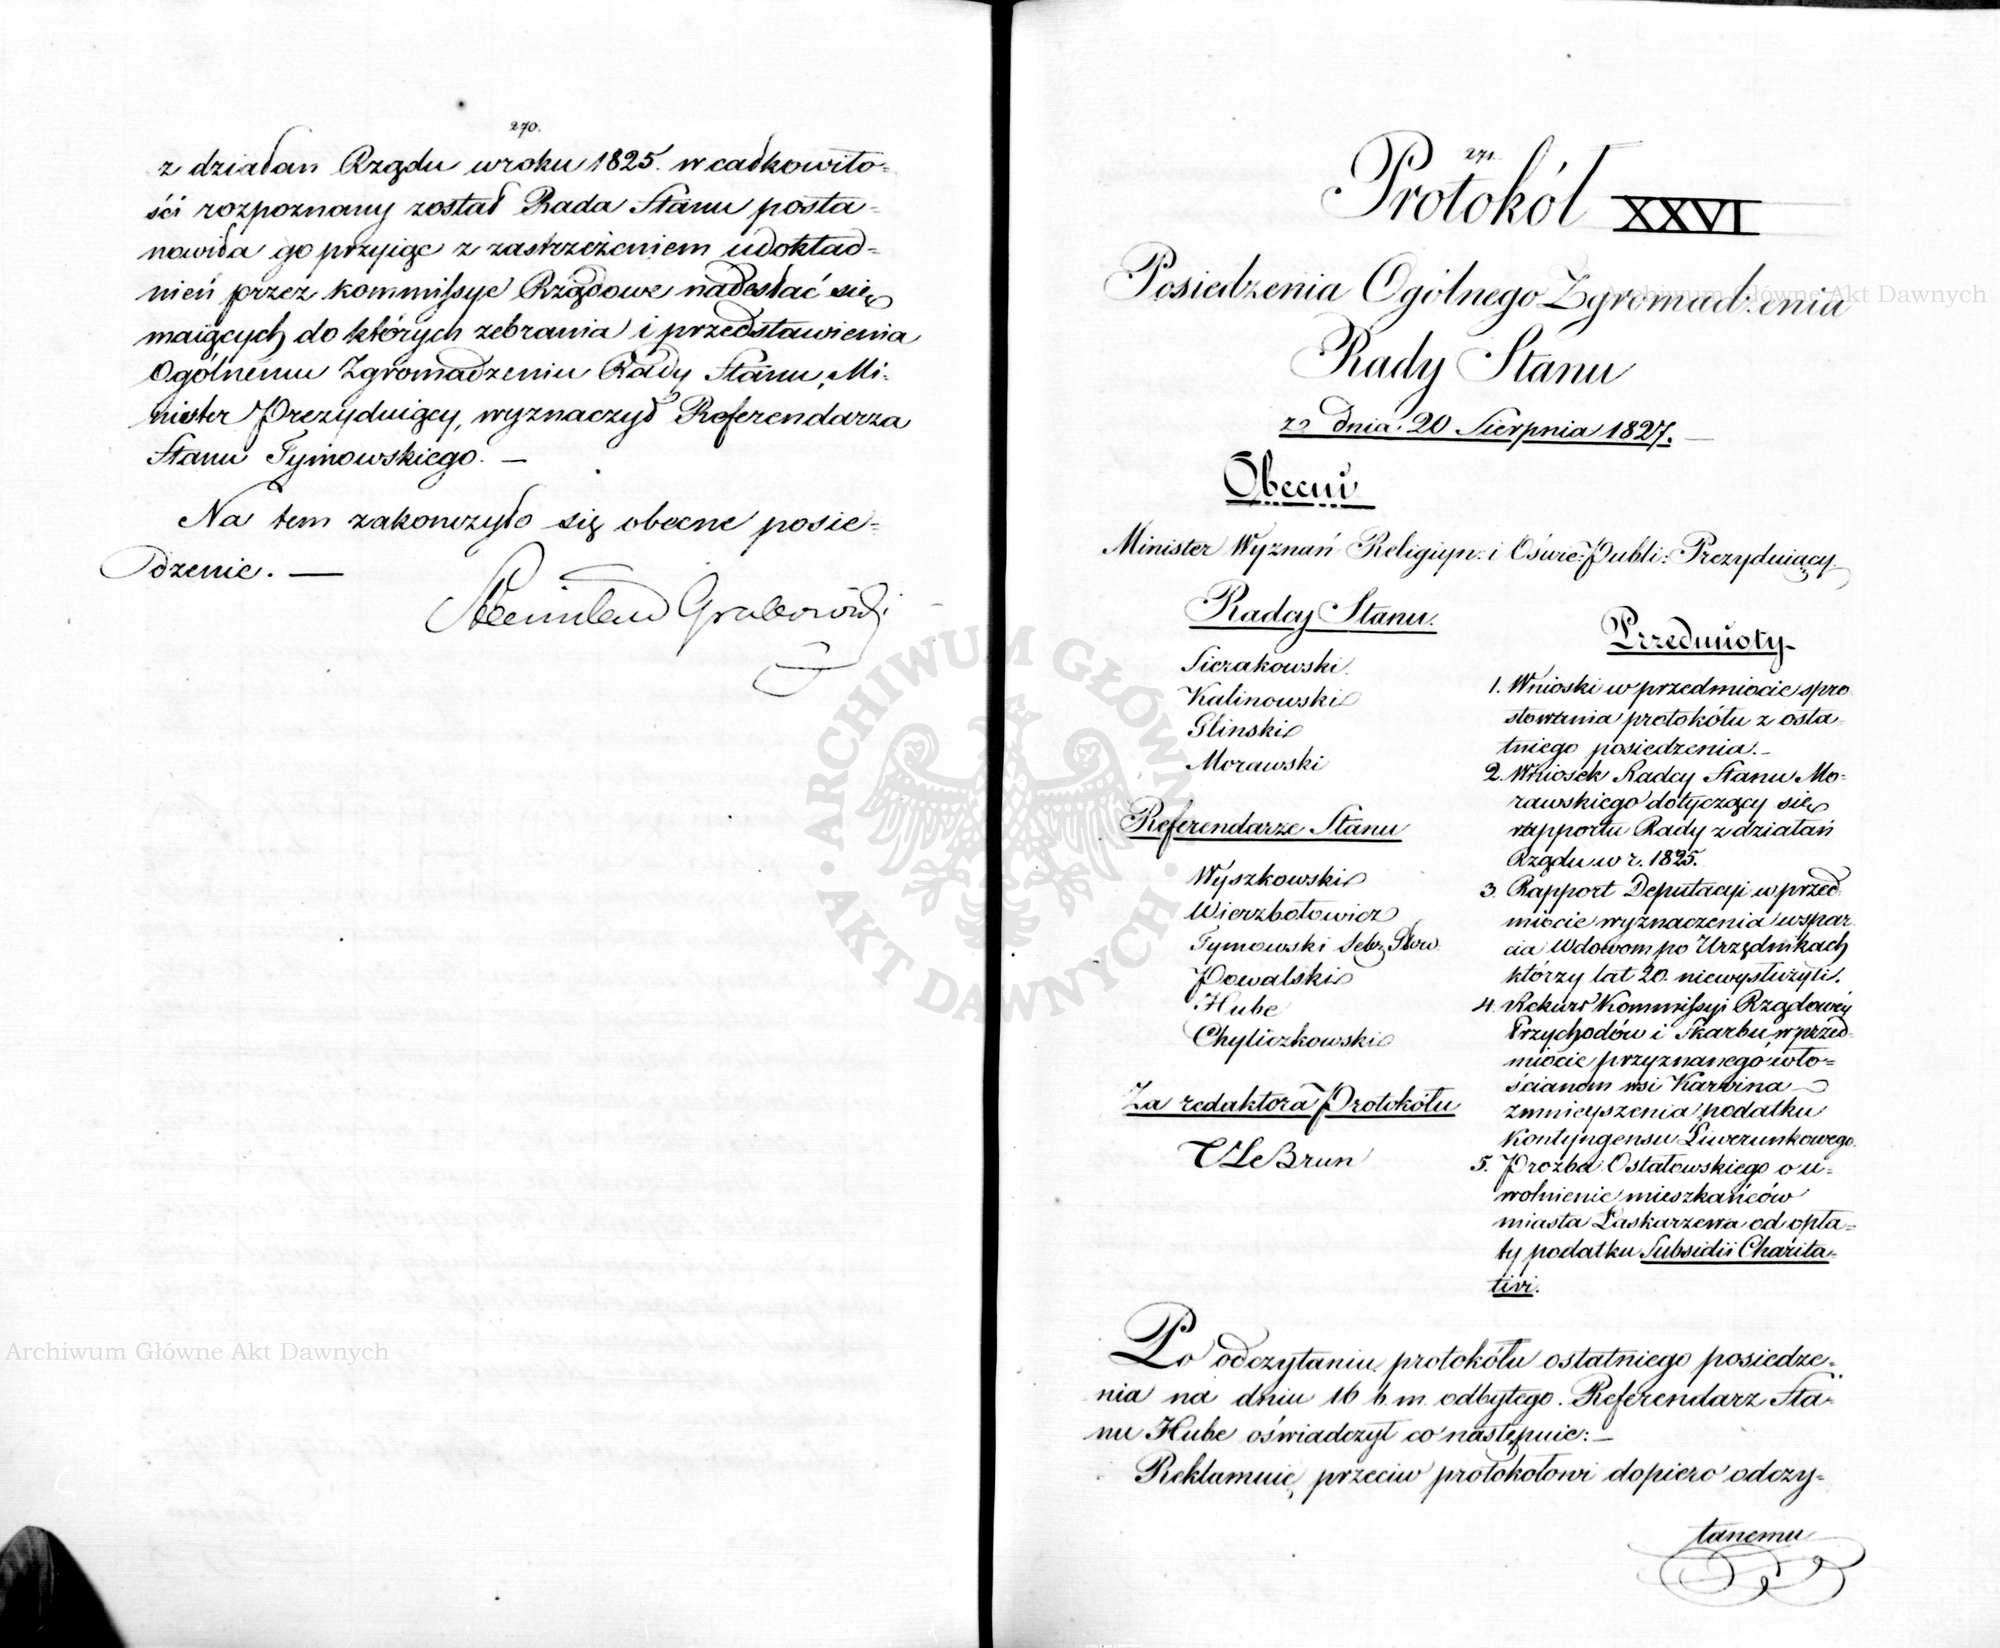 270.
z działan Rządu w roku 1825. w całkowito=
ści rozpoznany został Rada Stanu posta=
nowiła go przyiąc z zastrzeżeniem udokład=
nień przez kommissye Rządowe nadesłać się
maiących do których zebrania i przedstawienia
Ogólnemu Zgromadzeniu Rady Stanu, Mi=
nister Prezyduiący, wyznaczył Referendarza
Stanu Tymowskiego. —
Na tem zakonczyło się obecne posie=
dzenie. —
Stanisław Grabowski
271.
Protokół XXVI
Posiedzenia Ogólnego Zgromadzenia
Rady Stanu
z dnia 20 Sierpnia 1827. —
Obecni
Minister Wyznań Religiyn: i Oświe: Publi: Prezyduiący.
Radcy Stanu.
Sierakowski.
Kalinowski
Glinski
Morawski
Referendarze Stanu
Wyszkowski
Wierzbołowicz
Tymowski Sekr. Głow.
Powalski
Hube
Chyliczkowski
Za redaktora Protokółu
LeBrun
Przedmioty.
1. Wnioski w przedmiocie spro
stowania protokółu z osta=
tniego posiedzenia. —
2. Wniosek Radcy Stanu Mo=
rawskiego dotyczący się
rapportu Rady z działań
Rządu w r. 1825.
3. Rapport Deputacyi w przed
miocie wyznaczenia wspar
cia Wdowom po Urzędnikach
którzy lat 20. niewysłużyli.
4. Rekurs Kommissyi Rządowéy
Przychodów i Skarbu w przed=
miocie przyznanego wło=
ścianom wsi Karwina
zmnieyszenia podatku
Kontyngensu Liwerunkowego.
5. Prozba Ostałowskiego o u=
wolnienie mieszkańców
miasta Łaskarzewa od opła=
ty podatku Subsidii Charita=
tivi.
Po odczytaniu protokółu ostatniego posiedze=
nia na dniu 16 b. m. odbytego. Referendarz Sta=
nu Hube oświadczył co następuie: —
Reklamuię przeciw protokołowi dopiero odczy=
tanemu
Archiwum Główne Akt Dawnych
Archiwum Główne Akt Dawnych
ARCHIWUM GŁÓWNE · AKT DAWNYCH ·